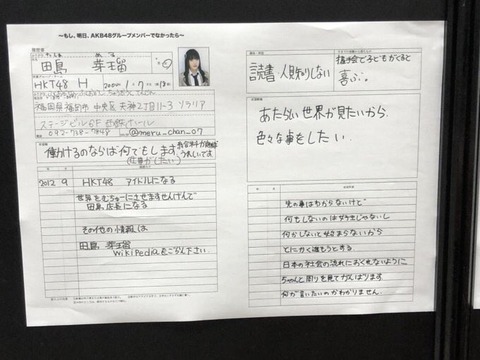 〜もし、明日、AKB48グループメンバーでなかったら〜
履歴書
田島 芽瑠
HKT48 H
福岡県福岡市 中央区 天神2丁目11-3 ソラリア
ステージビル6F 西鉄ホール
@meru_chan_07
働かけるのならば何でもします
(仕事がしたい)
2012 9 HKT48 アイドルになる
世界をむちゅーにさせませんけんで
田島店長になる
その他の情報は
田島 芽瑠
Wikipediaをごらん下さい
読書 人見知りしない
握手会で子どもがくると
喜ぶ。
あたらしい世界が見たいから
色々な事をしたい
先の事はわからないけど
何もしないのは好きじゃないし
何かしないと始まらないから
とにかく進もうとする
日本の社会の流れにおくれないように
ちゃんと周りを見てがんばります
何が言いたいのかわかりません